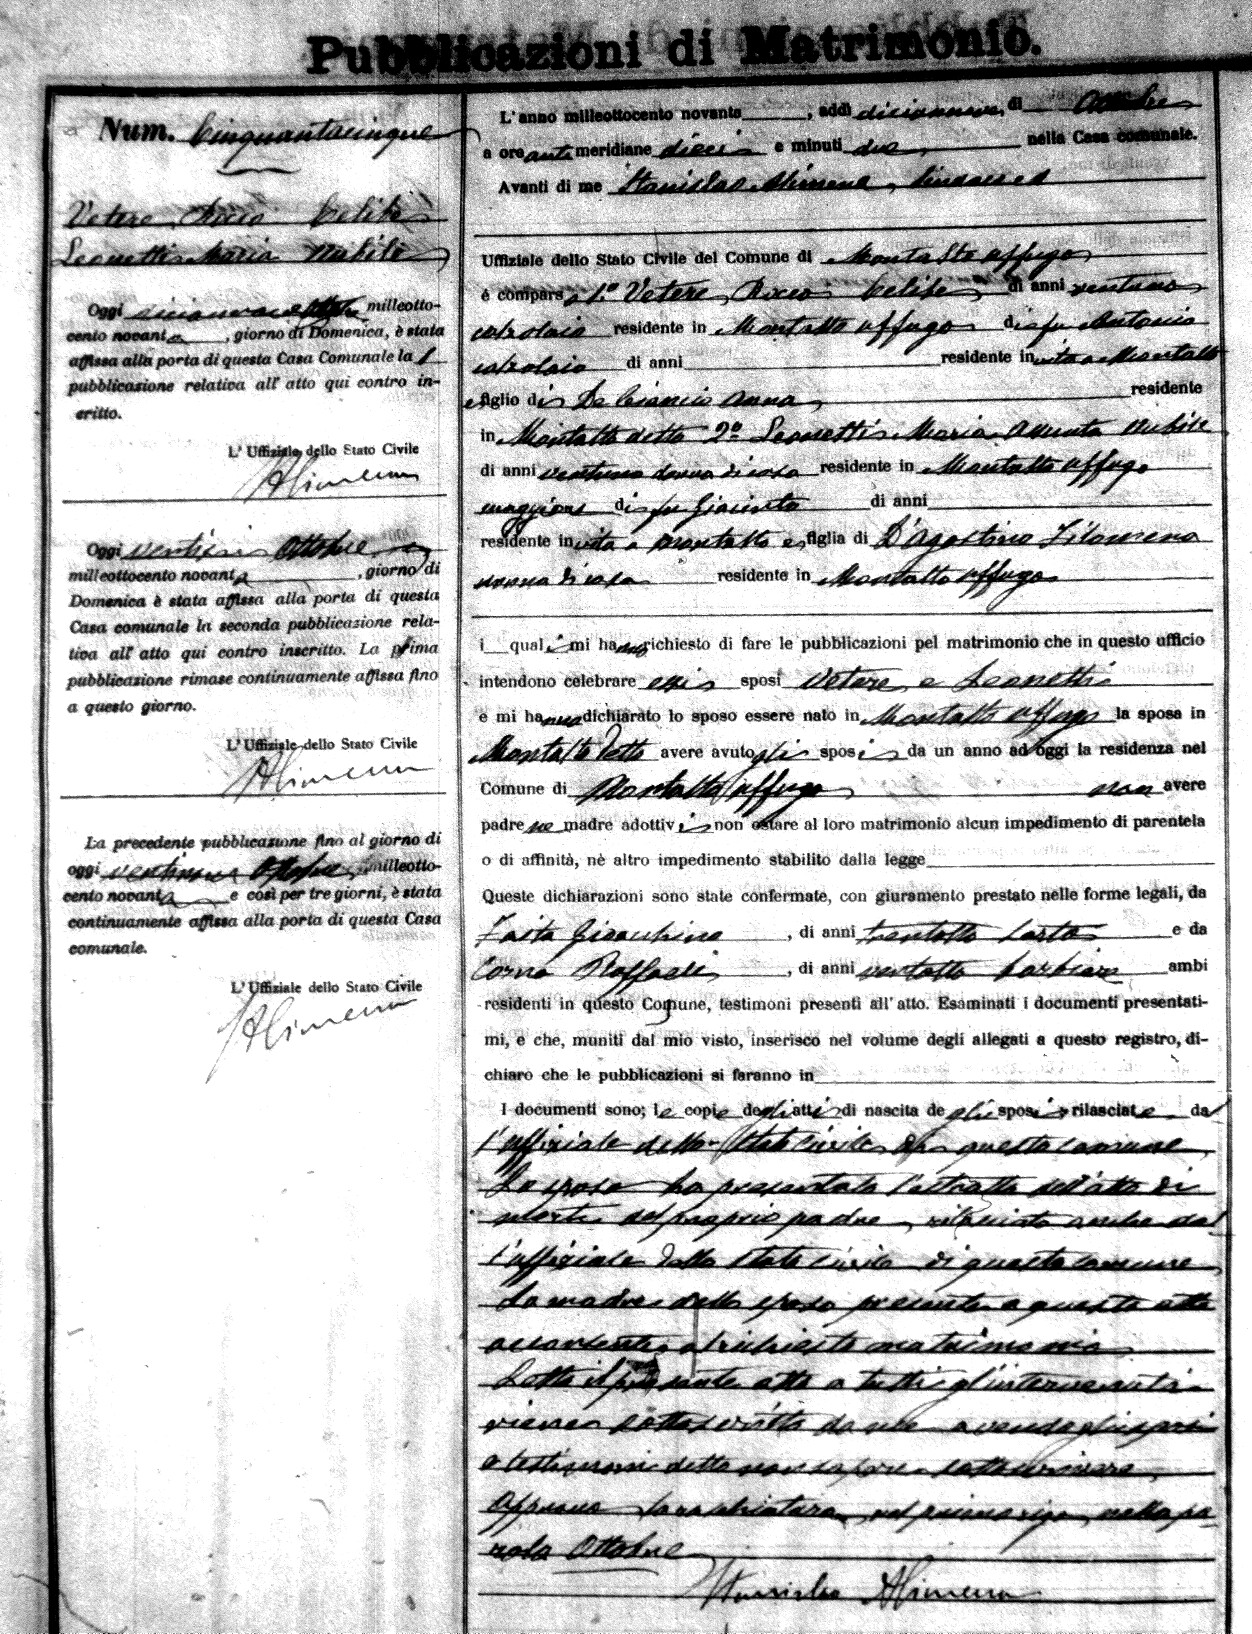 Pubblicazioni di Matrimonio.
Num. Cinquantacinque
Vetere Rocco Celibe
Leonetti Maria Nubile
Oggi diciannove Ottobre milleotto-
cento novanta, giorno di Domenica, è stata
affissa alla porta di questa Casa Comunale la 1
pubblicazione relativa all' atto qui contro in-
critto.
L' Uffiziale dello Stato Civile
SAlimena
Oggi ventisei Ottobre
milleottocento novanta, giorno di
Domenica è stata affissa alla porta di questa
Casa comunale la seconda pubblicazione rela-
tiva all' atto qui contro inscritto. La prima
pubblicazione rimase continuamente affissa fino
a questo giorno.
L' Uffiziale dello Stato Civile
SAlimena
La precedente pubblicazione fino al giorno di
oggi ventinove Ottobre milleotto-
cento novanta e così per tre giorni, è stata
continuamente affissa alla porta di questa Casa
comunale.
L' Uffiziale dello Stato Civile
SAlimena
L' anno milleottocento novanta, addì diciannove, di Ottobre
a ore anti meridiane dieci e minuti due, nella Casa comunale.
Avanti di me Stanislao Alimena, Sindaco ed
Uffiziale dello Stato Civile del Comune di Montalto Uffugo
è compars 1.º Vetere Rocco Celibe di anni ventuno
calzolaio residente in Montalto Uffugo di fu Antonio
calzolaio di anni residente in vita a Montalto
e figlio di De Ciancio Anna residente
in Montalto detto 2º Leonetti Maria Assunta nubile
di anni ventuno donna di casa residente in Montalto Uffugo
maggiore di fu Giacinto di anni
residente in vita a Montalto e figlia di D'Agostino Filomena
donna di casa residente in Montalto Uffugo
i quali mi hanno richiesto di fare le pubblicazioni pel matrimonio che in questo ufficio
intendono celebrare essi sposi Vetere e Leonetti
e mi hanno dichiarato lo sposo essere nato in Montalto Uffugo la sposa in
Montalto detto avere avuto gli sposi da un anno ad oggi la residenza nel
Comune di Montalto Uffugo non avere
padre ne madre adottivi non ostare al loro matrimonio alcun impedimento di parentela
o di affinità, nè altro impedimento stabilito dalla legge
Queste dichiarazioni sono state confermate, con giuramento prestato nelle forme legali, da
Faita Gioacchino, di anni trentotto sarto e da
Corno Raffaele, di anni ventotto barbiere ambi
residenti in questo Comune, testimoni presenti all' atto. Esaminati i documenti presentati-
mi, e che, muniti dal mio visto, inserisco nel volume degli allegati a questo registro, di-
chiaro che le pubblicazioni si faranno in
I documenti sono; le copie degli atti di nascita de gli sposi rilasciate dal
l'uffiziale dello Stato Civile di questo comune
Lo sposo ha presentato l'estratto dell'atto di
morte del proprio padre, rilasciato anche dal
l'uffiziale dello Stato Civile di questo comune
La madre dello sposo presente a questo atto
acconsente al richiesto matrimonio
Letto il presente atto a tutti gl'intervenuti
viene sottoscritto da me avendo gli sposi
e testimoni detto non sapere sottoscrivere
Approvo la raschiatura nel primo rigo nella pa-
rola Ottobre
Stanislao Alimena